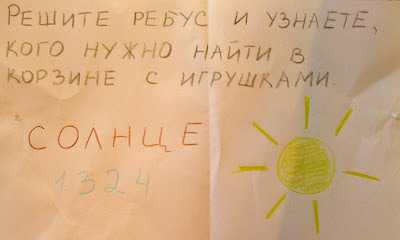 РЕШИТЕ РЕБУС И УЗНАЕТЕ,
КОГО НУЖНО НАЙТИ В
КОРЗИНЕ С ИГРУШКАМИ.
СОЛНЦЕ
1324